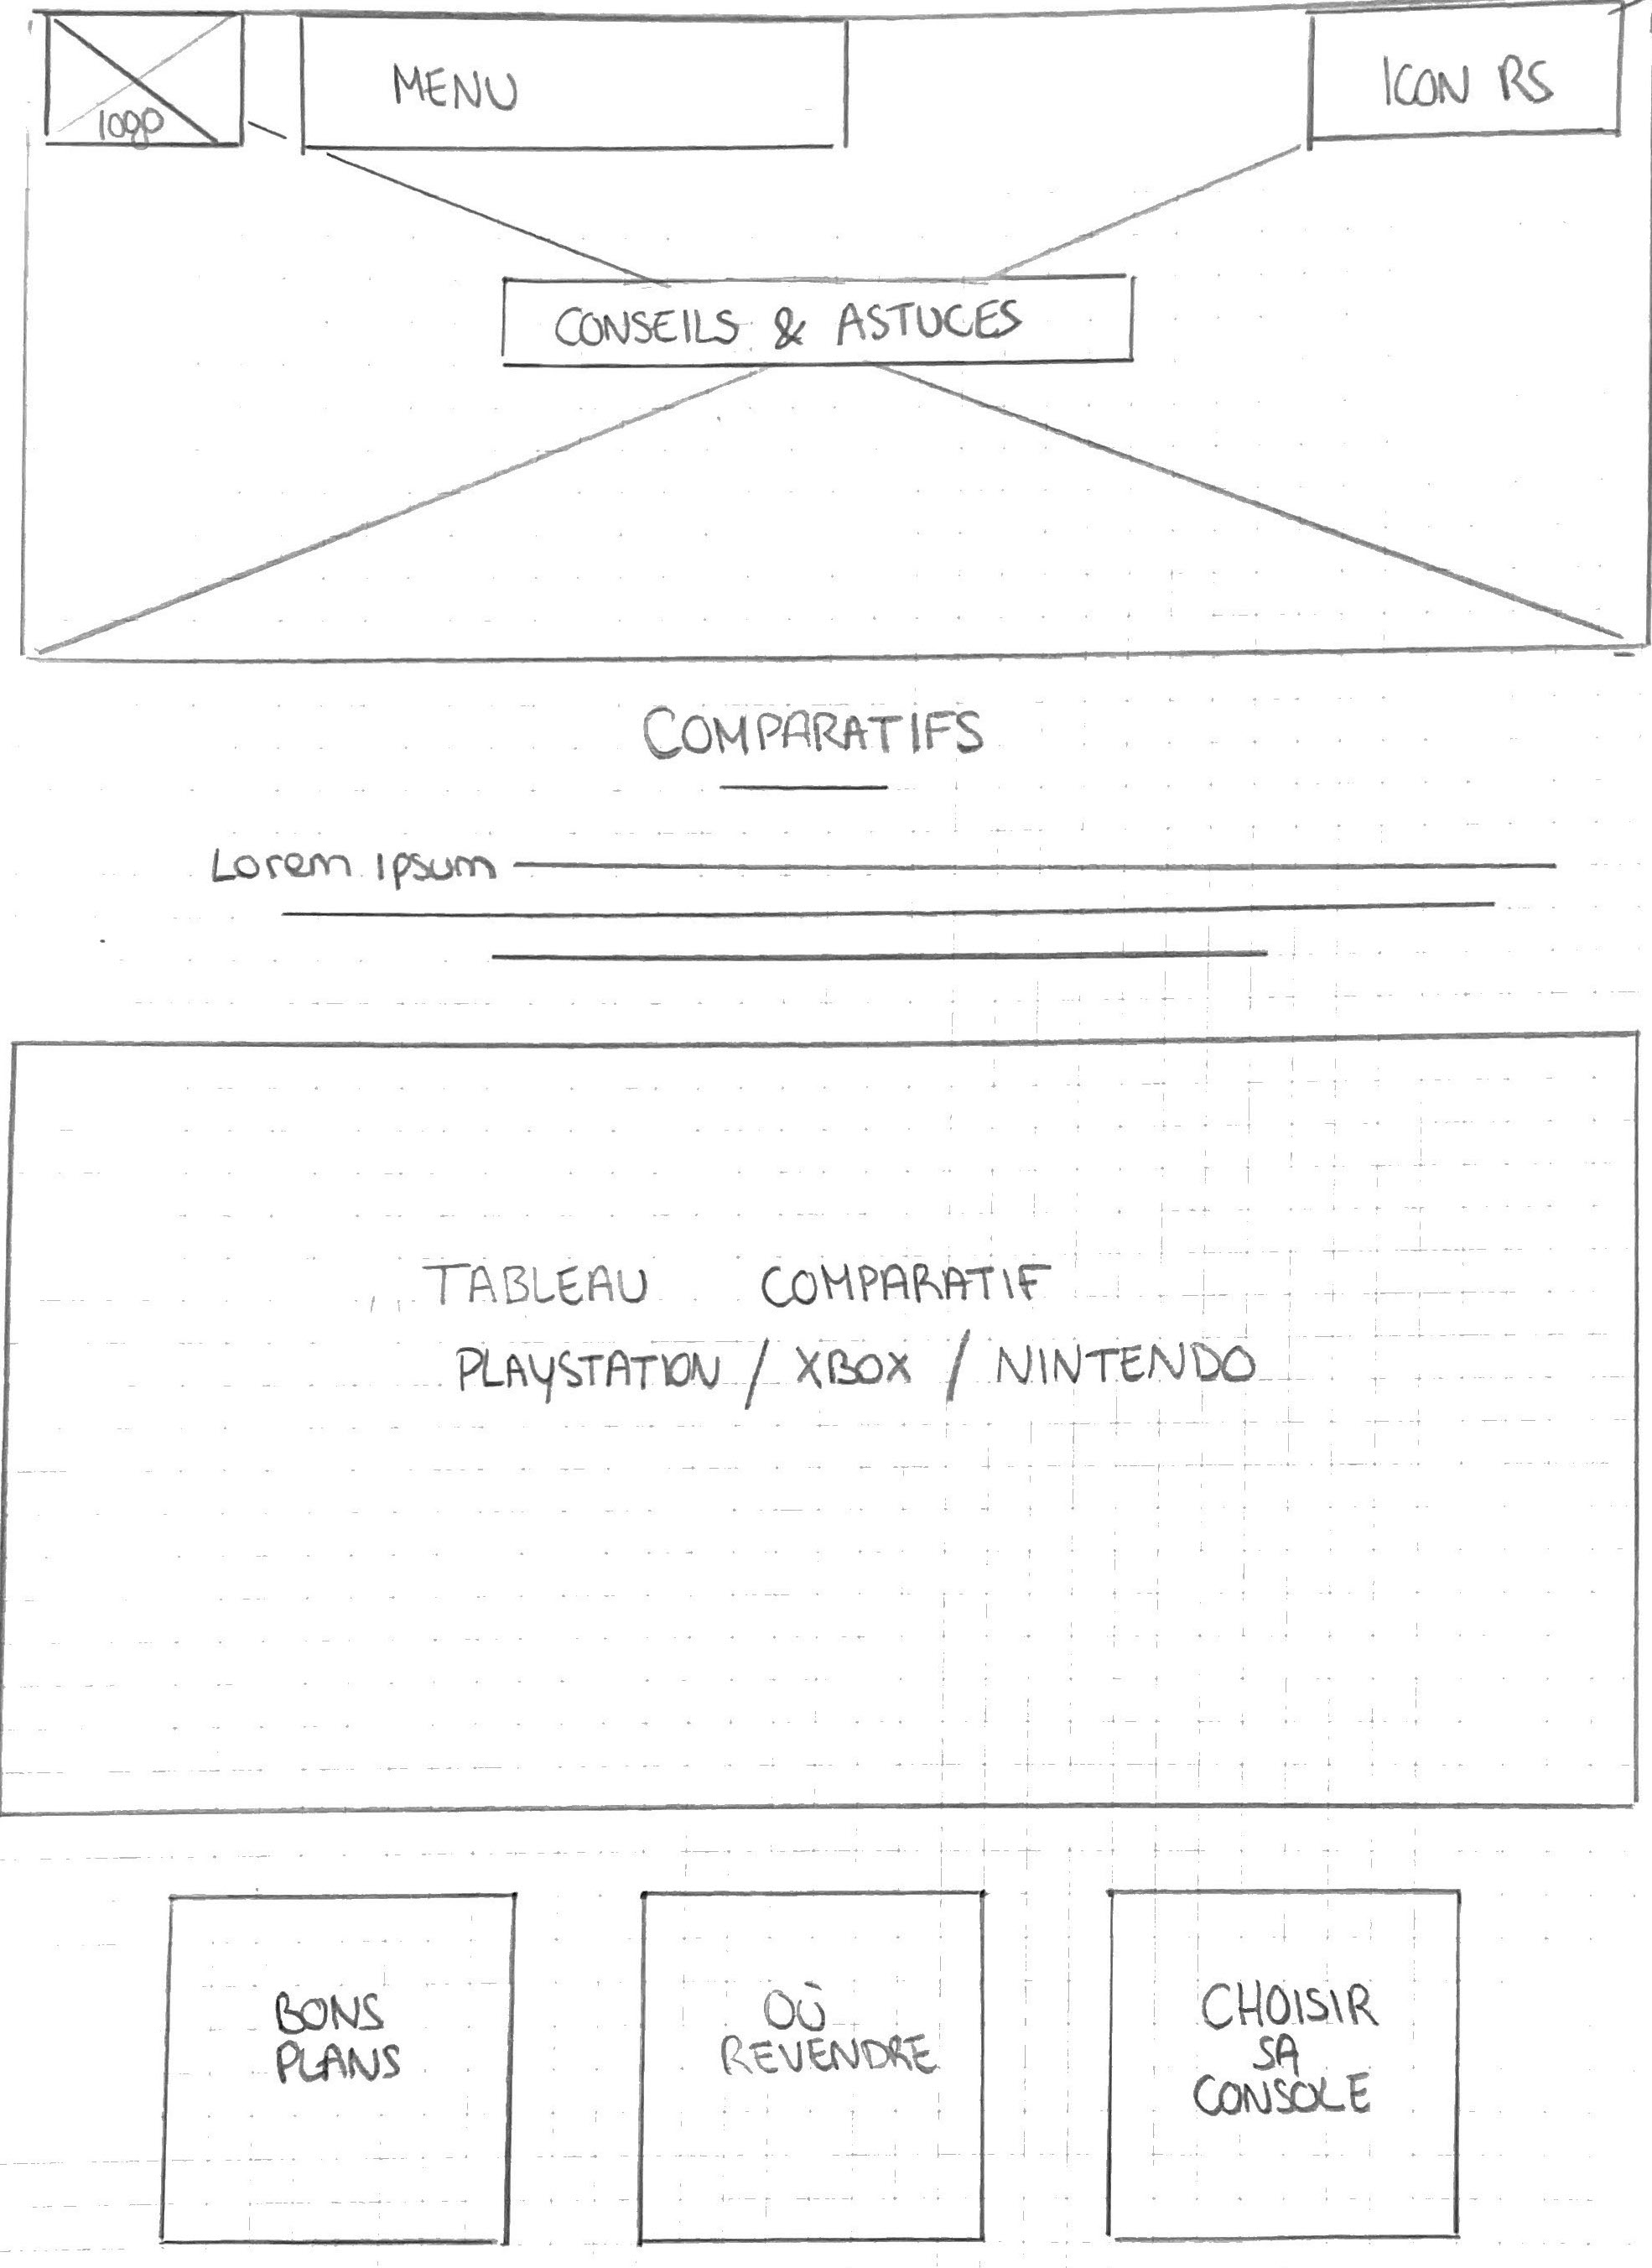 logo
MENU
ICON RS
CONSEILS & ASTUCES
COMPARATIFS
Lorem ipsum
TABLEAU COMPARATIF
PLAYSTATION / XBOX / NINTENDO
BONS
PLANS
OÙ
REVENDRE
CHOISIR
SA
CONSOLE